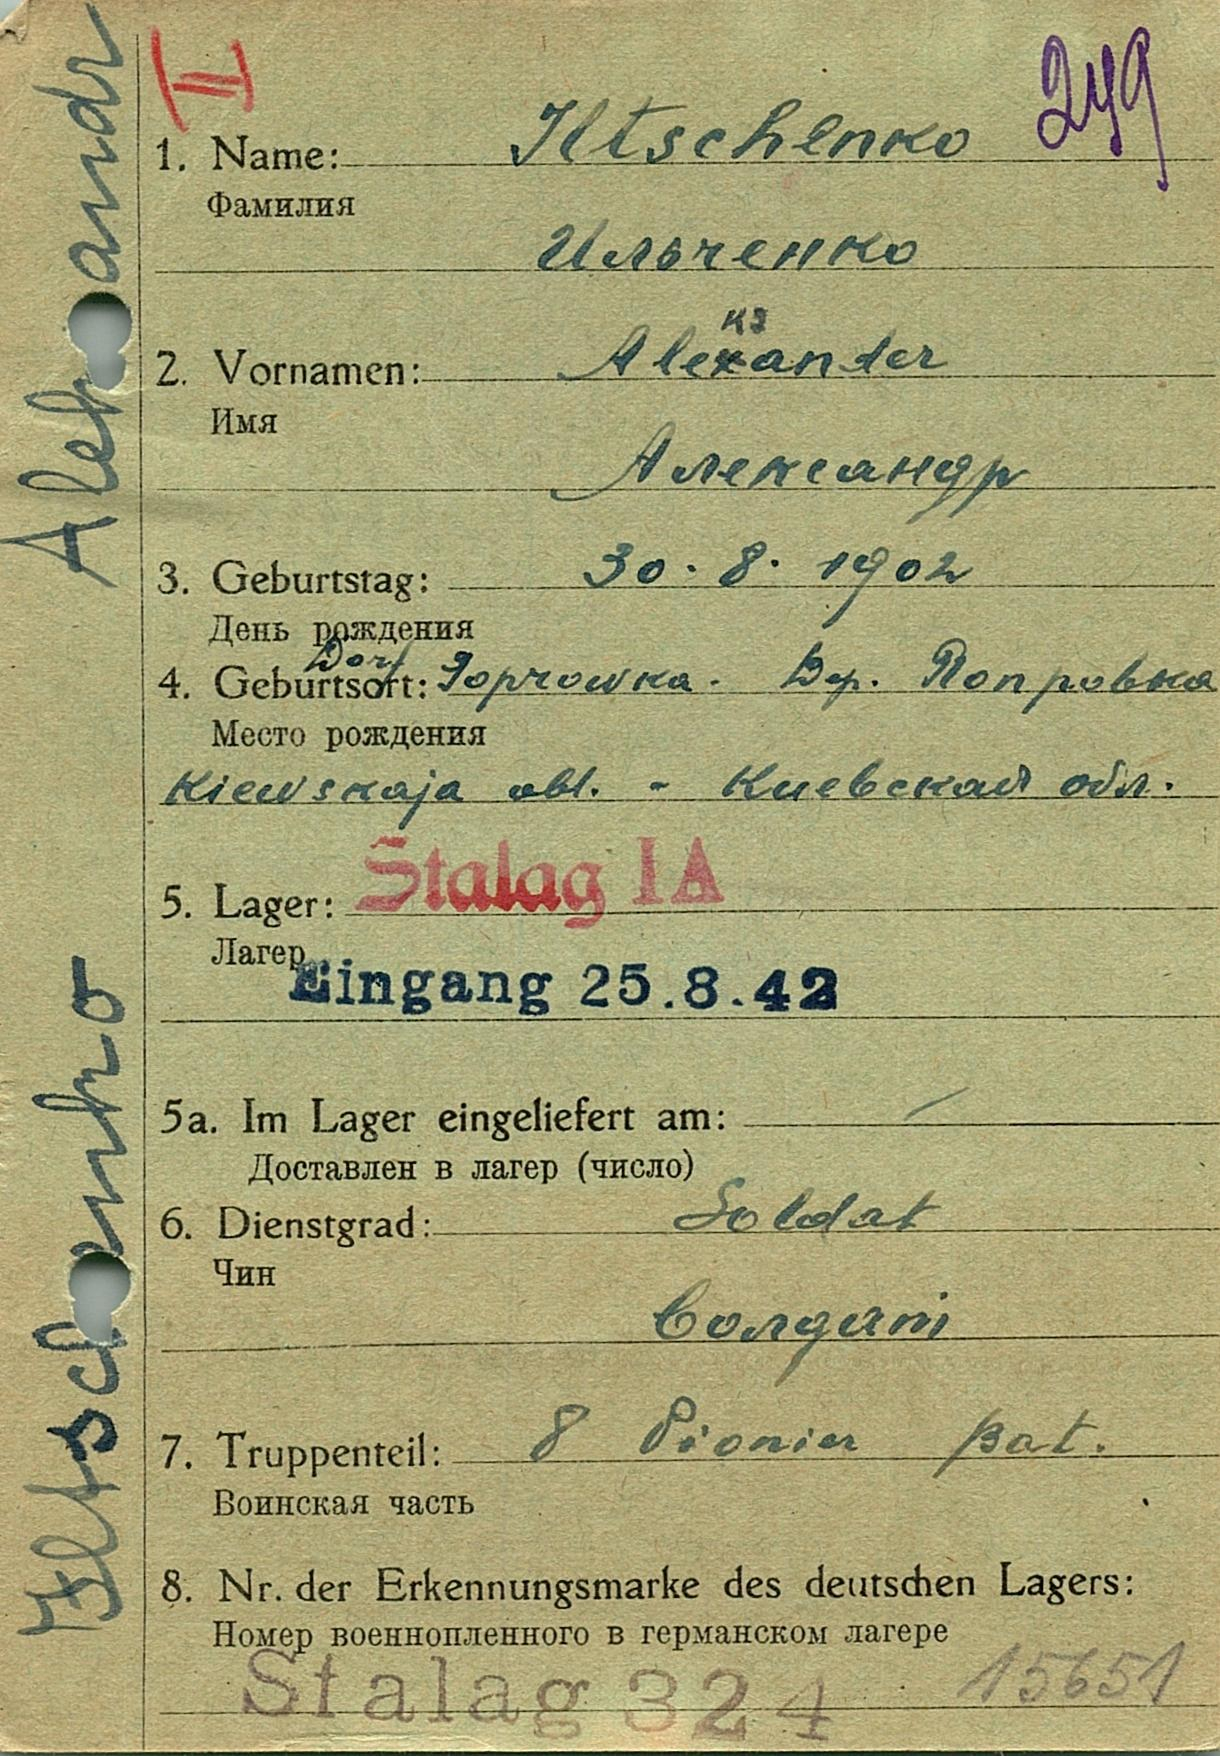 II
249
1. Name: Iltschenko
Фамилия
Ильченко
кs
2. Vornamen: Alexander
Имя
Александр
3. Geburtstag: 30. 8. 1902
День рождения
Dorf
4. Geburtsort: Poprowka. Дер. Попровка
Место рождения
Kiewskaja obl. - Киевская обл.
5. Lager: Stalag IA
Лагер
Eingang 25.8.42
5a. Im Lager eingeliefert am:
Доставлен в лагер (число)
6. Dienstgrad: Soldat
Чин
Солдат
7. Truppenteil: 8 Pionier Bat.
Воинская часть
8. Nr. der Erkennungsmarke des deutschen Lagers:
Номер военнопленного в германском лагере
Stalag 324 15651
Iltschenko Aleksandr